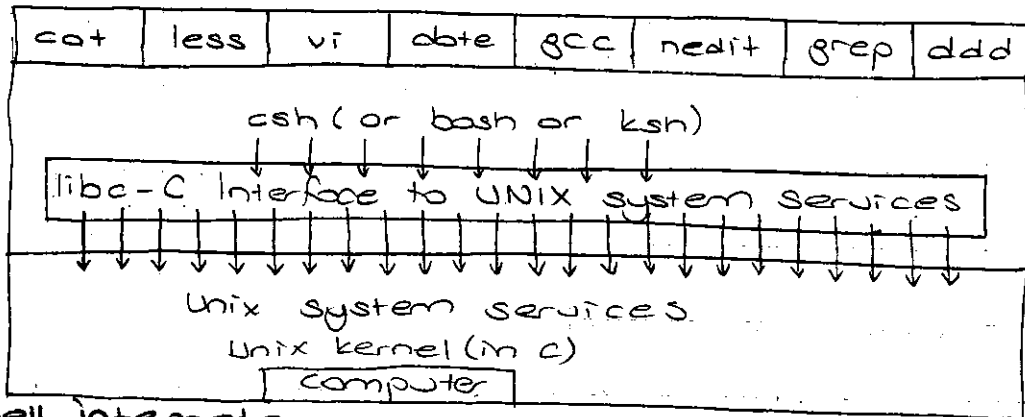 cat less vi date gcc nedit grep ddd
csh (or bash or ksh)
libc - C Interface to UNIX system services
Unix system services
Unix kernel (in c)
computer